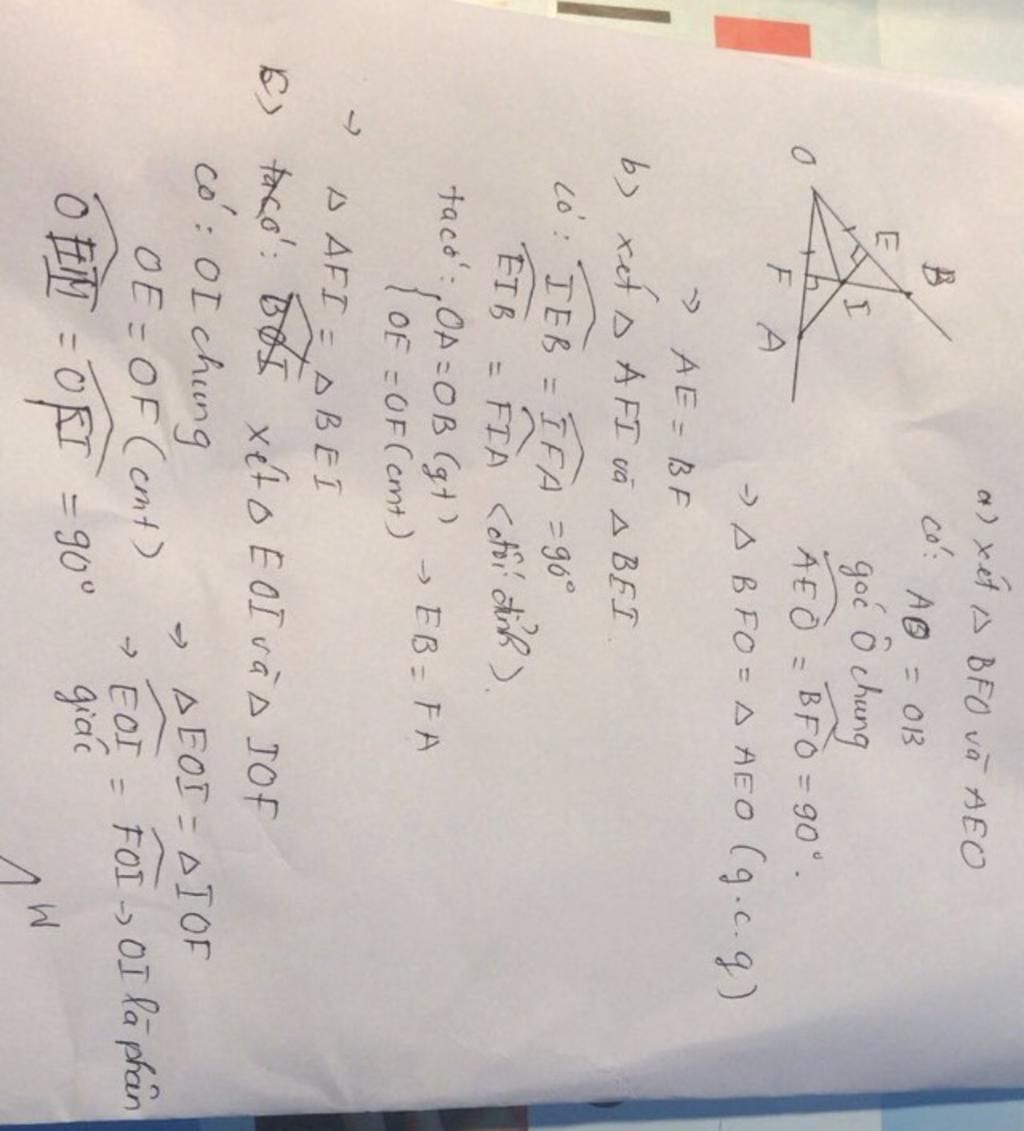 a) xét △ BFO và AEO
có: AO = OB
góc Ô chung
AEO = BFO = 90°.
→ △ BFO = △ AEO (g.c.g)
→ AE = BF
O E B I F A
b) xét △ AFI và △ BEI.
có: IEB = IFA = 90°
EIB = FIA (đối đỉnh).
ta có: { OA = OB (gt)
OE = OF (cmt) → EB = FA
→ △ AFI = △ BEI
c) ta có: BOI xét △ EOI và △ IOF
có: OI chung
OE = OF (cmt)
= OFI = 90°
→ △ EOI = △ IOF
→ EOI = FOI → OI là phân
giác
W